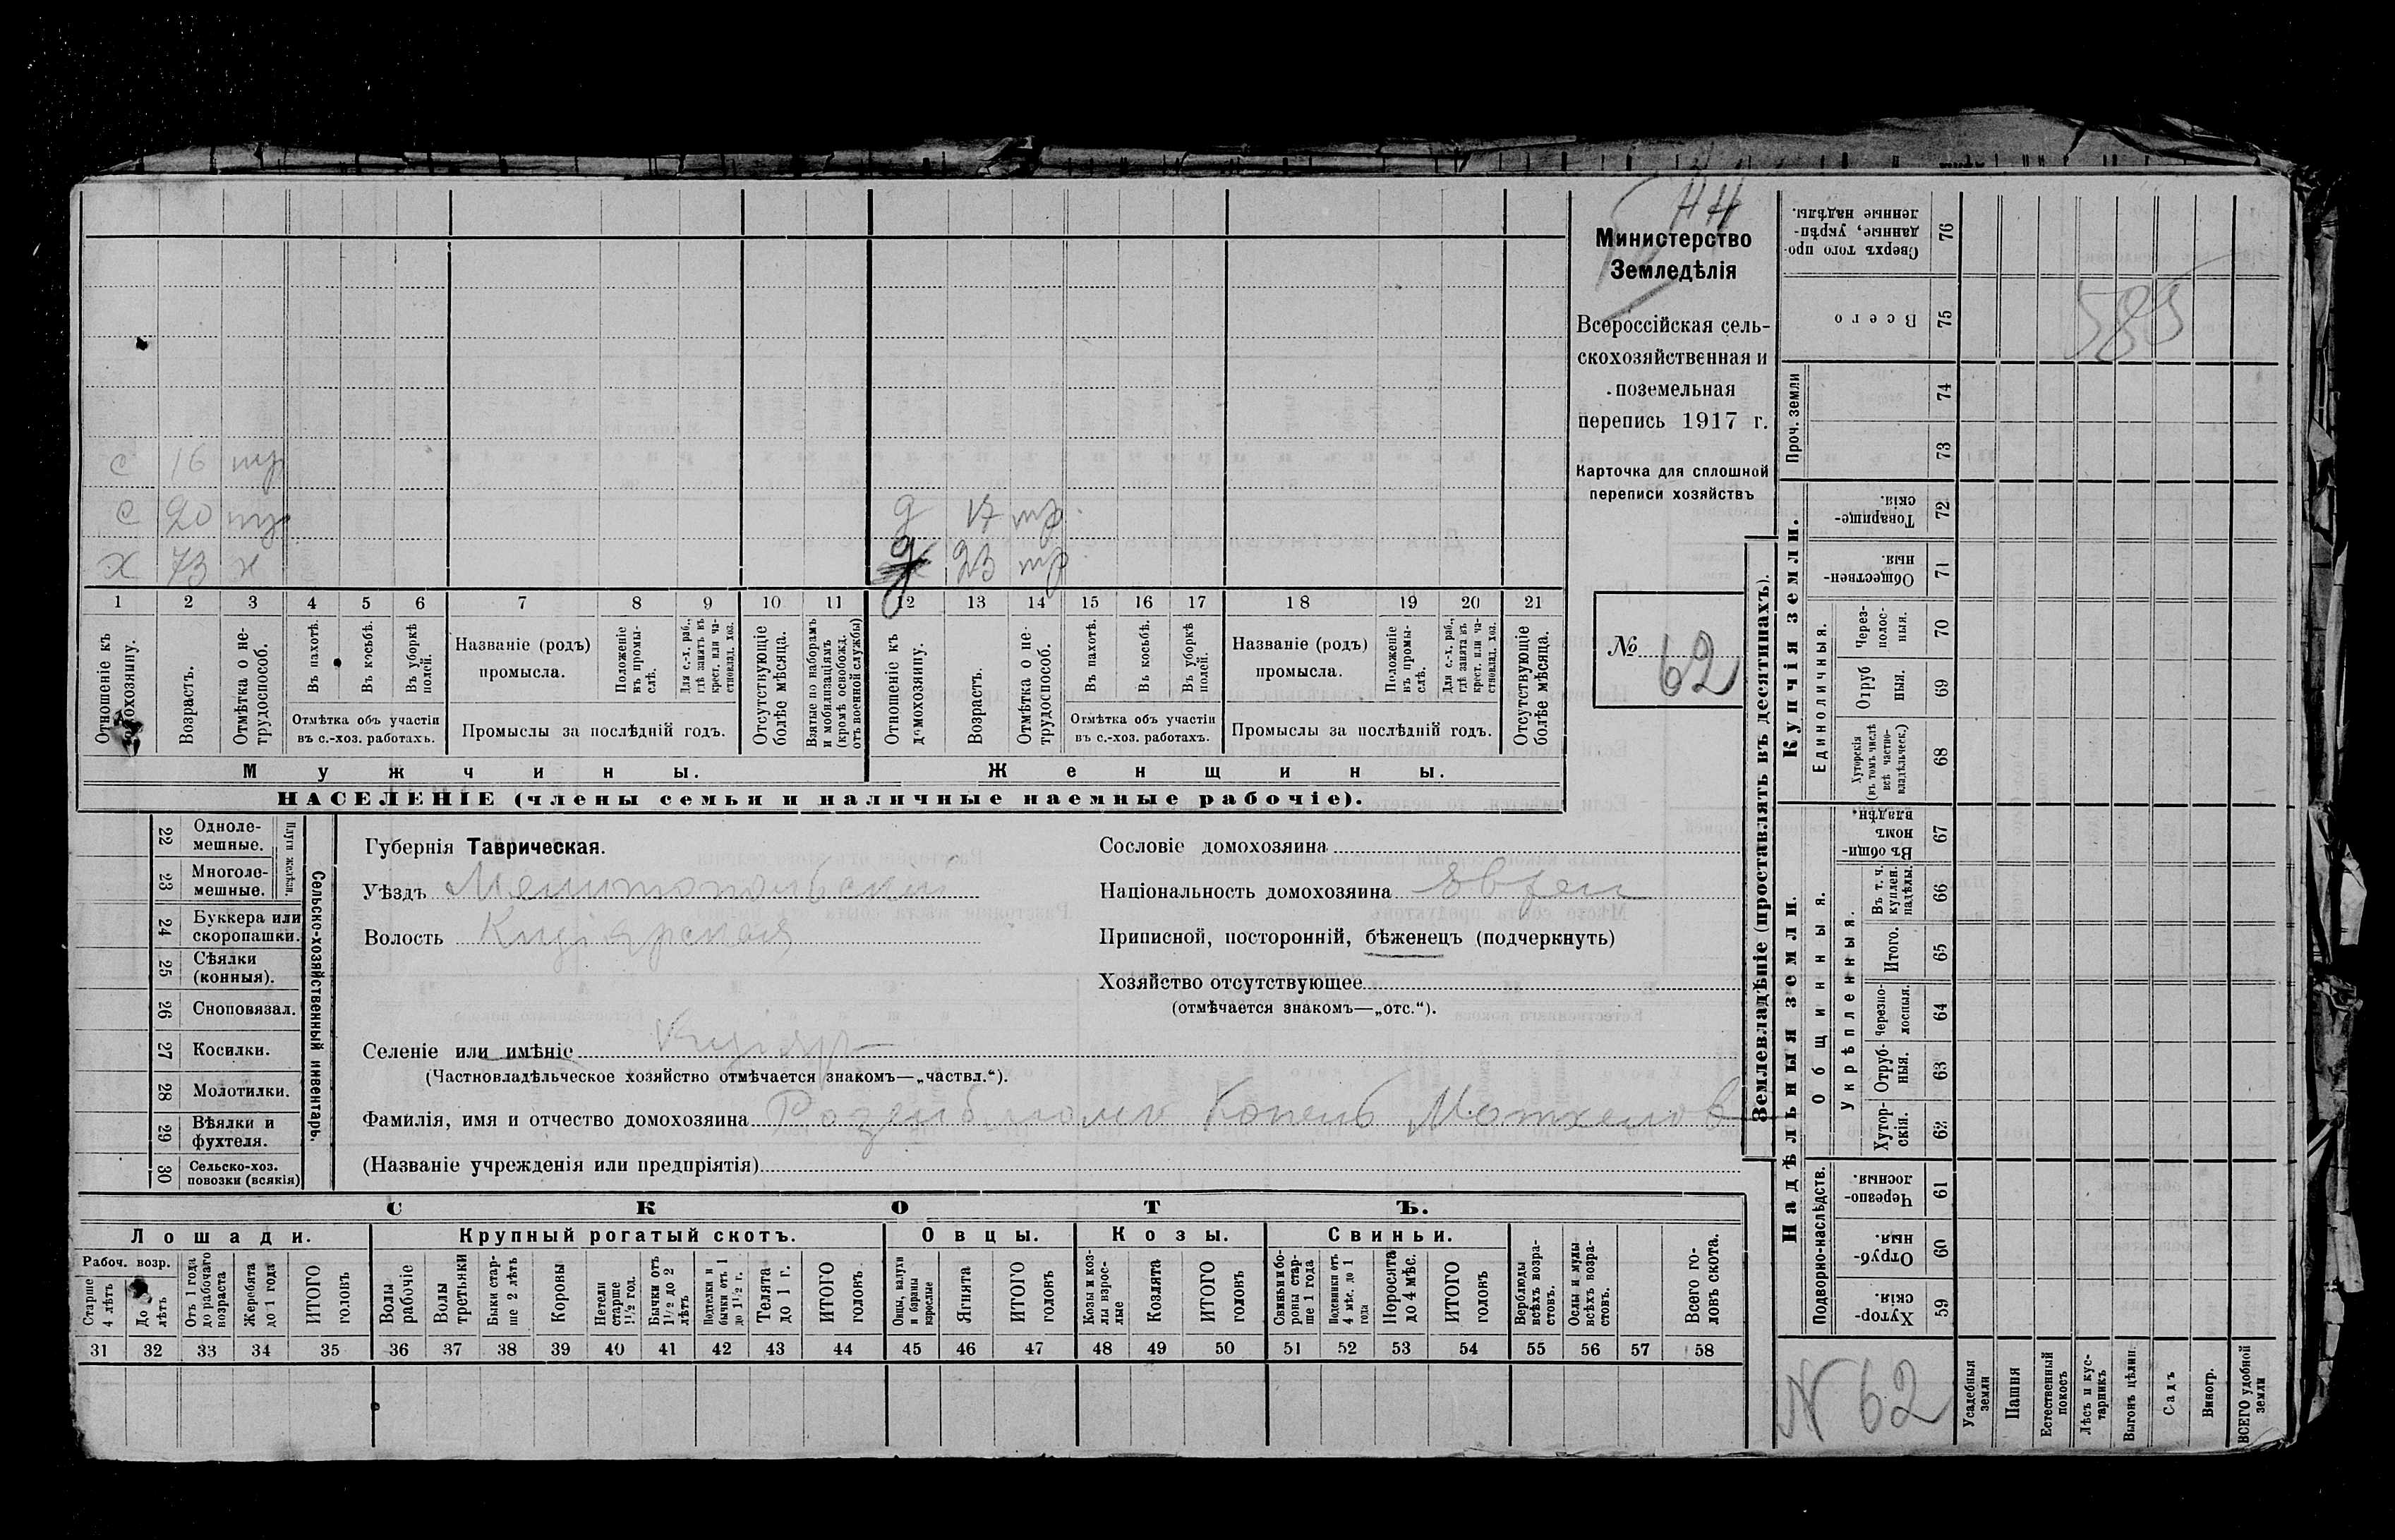 44
Министерство
Земледѣлія
Всероссійская сель-
скохозяйственная и
поземельная
перепись 1917 г.
Карточка для сплошной
переписи хозяйствъ
№ 62
с 16
с 20
х 73 н
д 17
д 23
1 2 3 4 5 6 7 8 9 10 11 12 13 14 15 16 17 18 19 20 21
Отношеніе къ домохозяину.
Возрастъ.
Отмѣтка о не-
трудоспособ.
Въ пахотѣ.
Въ косьбѣ.
Въ уборкѣ
полей.
Отмѣтка объ участіи
въ с.-хоз. работахъ.
Названіе (родъ)
промысла.
Положеніе
въ промы-
слѣ.
Для с.-х. раб.,
гдѣ занятъ въ
крест. или ча-
стновлад. хоз.
Промыслы за послѣдній годъ.
Отсутствующіе
болѣе мѣсяца.
Взятые по наборамъ
и мобилизаціямъ
(кромѣ освобожд.
отъ военной службы)
Отношеніе къ
домохозяину.
Возрастъ.
Отмѣтка о не-
трудоспособ.
Въ пахотѣ.
Въ косьбѣ.
Въ уборкѣ
полей.
Отмѣтка объ участіи
въ с.-хоз. работахъ.
Названіе (родъ)
промысла.
Положеніе
въ промы-
слѣ.
Для с.-х. раб.,
гдѣ занята въ
крест. или ча-
стновлад. хоз.
Промыслы за послѣдній годъ.
Отсутствующіе
болѣе мѣсяца.
Мужчины.
Женщины.
НАСЕЛЕНІЕ (члены семьи и наличные наемные рабочіе).
22 Одноле-
мешные.
23 Многоле-
мешные.
Плуги желѣзн.
24 Буккера или
скоропашки.
25 Сѣялки
(конныя).
26 Сноповязал.
27 Косилки.
28 Молотилки.
29 Вѣялки и
фухтеля.
30 Сельско-хоз.
повозки (всякія)
Сельско-хозяйственный инвентарь.
Губернія Таврическая.
Уѣздъ Мелитопольскій
Волость Кизіярская
Селеніе или имѣніе Кизіяръ
(Частновладѣльческое хозяйство отмѣчается знакомъ—„частвл.“).
Фамилія, имя и отчество домохозяина Розенблюмъ Копель Мотхелов
(Названіе учрежденія или предпріятія)
Сословіе домохозяина
Національность домохозяина Еврей
Приписной, посторонній, бѣженецъ (подчеркнуть)
Хозяйство отсутствующее
(отмѣчается знакомъ—„отс.“).
СКОТЪ.
Лошади.
Рабоч. возр.
Старше
4 лѣтъ
До 4
лѣтъ
Отъ 1 года
до рабочаго
возраста
Жеребята
до 1 года
ИТОГО
головъ
Крупный рогатый скотъ.
Волы
рабочіе
Волы
третьяки
Быки стар-
ше 2 лѣтъ
Коровы
Нетели
старше
1½ год.
Бычки отъ
1½ до 2
лѣтъ
Подтелки и
бычки отъ 1
до 1½ г.
Телята
до 1 г.
ИТОГО
головъ.
Овцы.
Овцы, валухи
и бараны
взрослые
Ягнята
ИТОГО
головъ
Козы.
Козы и коз-
лы взрос-
лые
Козлята
ИТОГО
головъ
Свиньи.
Свиньи и бо-
ровы стар-
ше 1 года
Подсвинки отъ
4 мѣс. до 1
года
Поросята
до 4 мѣс.
ИТОГО
головъ
Верблюды
всѣхъ возра-
стовъ.
Ослы и мулы
всѣхъ возра-
стовъ.
Всего го-
ловъ скота.
31 32 33 34 35 36 37 38 39 40 41 42 43 44 45 46 47 48 49 50 51 52 53 54 55 56 57 58
Землевладѣніе (проставлять въ десятинахъ).
Сверхъ того про-
данные, укрѣп-
ленные надѣлы. 76
Всего 75
585
Проч. земли
74
73
Купчія земли.
Товарище-
скія. 72
Обществен-
ныя. 71
Единоличныя.
Через-
полос-
ныя. 70
Отруб
ныя. 69
Хуторскія
(въ томъ числѣ
всѣ частно-
владѣльческ.) 68
Надѣльныя земли.
Общинныя.
Въ общи-
номъ
владѣн. 67
Укрѣпленныя.
Въ т. ч.
куплен.
надѣлы. 66
Итого. 65
Черезпо-
лосныя. 64
Отруб-
ныя. 63
Хутор-
скія. 62
Подворно-наслѣдств.
Черезпо-
лосныя. 61
Отруб-
ныя. 60
Хутор-
скія. 59
N 62
Усадебныя
земли
Пашня
Естественный
покосъ
Лѣсъ и кус-
тарникъ
Выгонъ цѣлин.
Садъ
Виногр.
ВСЕГО удобной
земли